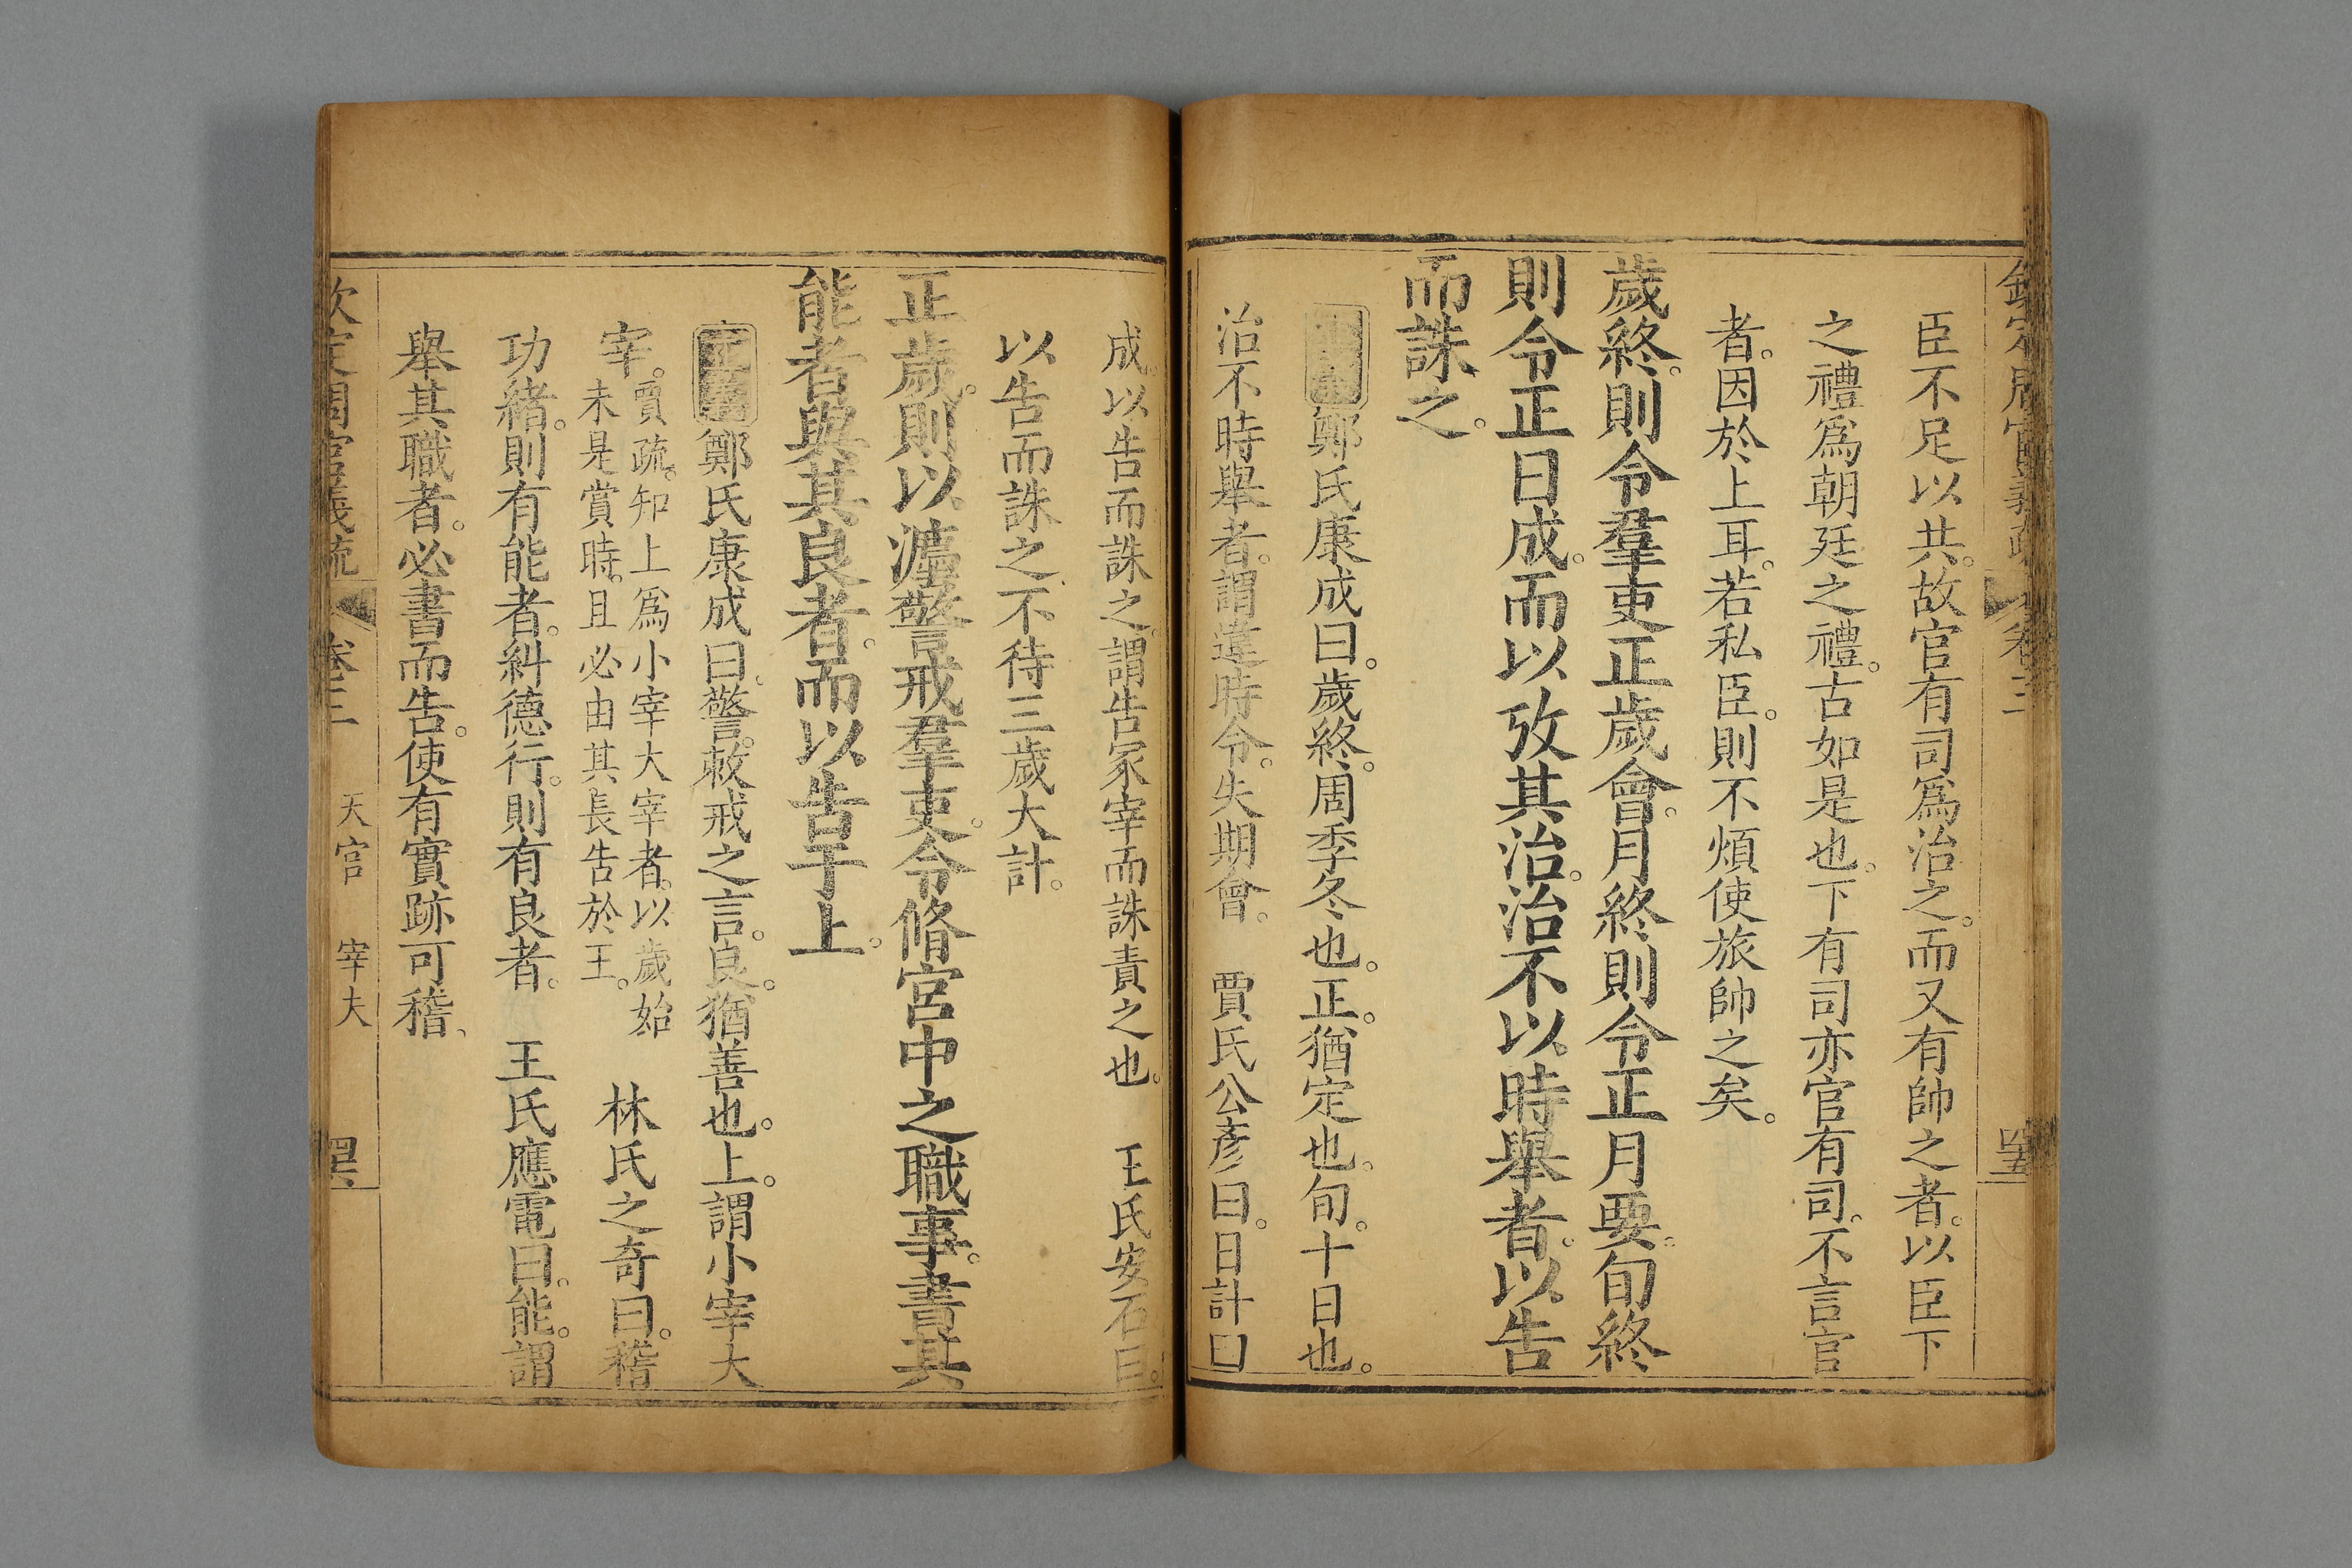 欽定周官義疏 卷三 罡
臣不足以共。故官有司爲治之。而又有帥之者。以臣下
之禮爲朝廷之禮。古如是也。下有司亦官有司。不言官
者。因於上耳。若私臣。則不煩使旅帥之矣。
歲終。則令羣吏正歲會。月終則令正月要。旬終
則令正日成。而以攷其治。治不以時舉者。以告
而誅之。
鄭氏康成曰。歲終。周季冬也。正。猶定也。旬。十日也。
治不時舉者。謂違時令。失期會。 賈氏公彥曰。日計曰
成。以告而誅之。謂告冢宰而誅責之也。 王氏安石曰。
以告而誅之。不待三歲大計。
正歲。則以灋警戒羣吏。令脩宮中之職事。書其
能者與其良者。而以告于上。
正義鄭氏康成曰。警。敕戒之言。良。猶善也。上。謂小宰大
宰。賈疏。知上爲小宰大宰者。以歲始
未是賞時。且必由其長告於王。 林氏之奇曰。稽
功緒。則有能者。糾德行。則有良者。 王氏應電曰。能。謂
舉其職者。必書而告。使有實跡可稽、
欽定周官義疏 卷三 天官 宰夫